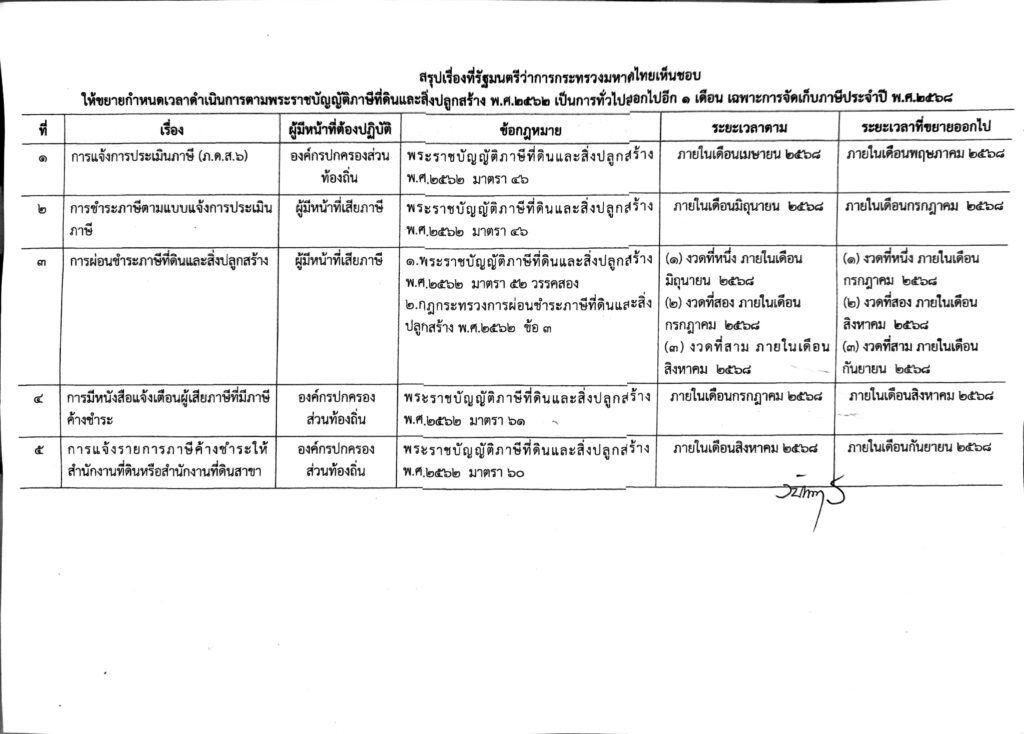 สรุปเรื่องที่รัฐมนตรีว่าการกระทรวงมหาดไทยเห็นชอบ
ให้ขยายกำหนดเวลาดำเนินการตามพระราชบัญญัติภาษีที่ดินและสิ่งปลูกสร้าง พ.ศ.๒๕๖๒ เป็นการทั่วไปออกไปอีก ๑ เดือน เฉพาะการจัดเก็บภาษีประจำปี พ.ศ.๒๕๖๘
ที่ เรื่อง ผู้มีหน้าที่ต้องปฏิบัติ ข้อกฎหมาย ระยะเวลาตาม ระยะเวลาที่ขยายออกไป
๑ การแจ้งการประเมินภาษี (ภ.ด.ส.๖) องค์กรปกครองส่วน พระราชบัญญัติภาษีที่ดินและสิ่งปลูกสร้าง ภายในเดือนเมษายน ๒๕๖๘ ภายในเดือนพฤษภาคม ๒๕๖๘
ท้องถิ่น พ.ศ.๒๕๖๒ มาตรา ๔๖
๒ การชำระภาษีตามแบบแจ้งการประเมิน ผู้มีหน้าที่เสียภาษี พระราชบัญญัติภาษีที่ดินและสิ่งปลูกสร้าง ภายในเดือนมิถุนายน ๒๕๖๘ ภายในเดือนกรกฎาคม ๒๕๖๘
ภาษี พ.ศ.๒๕๖๒ มาตรา ๔๖
๓ การผ่อนชำระภาษีที่ดินและสิ่งปลูกสร้าง ผู้มีหน้าที่เสียภาษี ๑.พระราชบัญญัติภาษีที่ดินและสิ่งปลูกสร้าง (๑) งวดที่หนึ่ง ภายในเดือน (๑) งวดที่หนึ่ง ภายในเดือน
พ.ศ.๒๕๖๒ มาตรา ๕๒ วรรคสอง มิถุนายน ๒๕๖๘ กรกฎาคม ๒๕๖๘
๒.กฎกระทรวงการผ่อนชำระภาษีที่ดินและสิ่ง (๒) งวดที่สอง ภายในเดือน (๒) งวดที่สอง ภายในเดือน
ปลูกสร้าง พ.ศ.๒๕๖๒ ข้อ ๓ กรกฎาคม ๒๕๖๘ สิงหาคม ๒๕๖๘
(๓) งวดที่สาม ภายในเดือน (๓) งวดที่สาม ภายในเดือน
สิงหาคม ๒๕๖๘ กันยายน ๒๕๖๘
๔ การมีหนังสือแจ้งเตือนผู้เสียภาษีที่มีภาษี องค์กรปกครอง พระราชบัญญัติภาษีที่ดินและสิ่งปลูกสร้าง ภายในเดือนกรกฎาคม ๒๕๖๘ ภายในเดือนสิงหาคม ๒๕๖๘
ค้างชำระ ส่วนท้องถิ่น พ.ศ.๒๕๖๒ มาตรา ๖๑
๕ การแจ้งรายการภาษีค้างชำระให้ องค์กรปกครอง พระราชบัญญัติภาษีที่ดินและสิ่งปลูกสร้าง ภายในเดือนสิงหาคม ๒๕๖๘ ภายในเดือนกันยายน ๒๕๖๘
สำนักงานที่ดินหรือสำนักงานที่ดินสาขา ส่วนท้องถิ่น พ.ศ.๒๕๖๒ มาตรา ๖๐